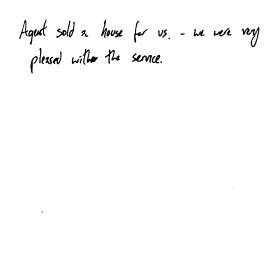 Agent sold a house for us. - we were very
pleased with the service.